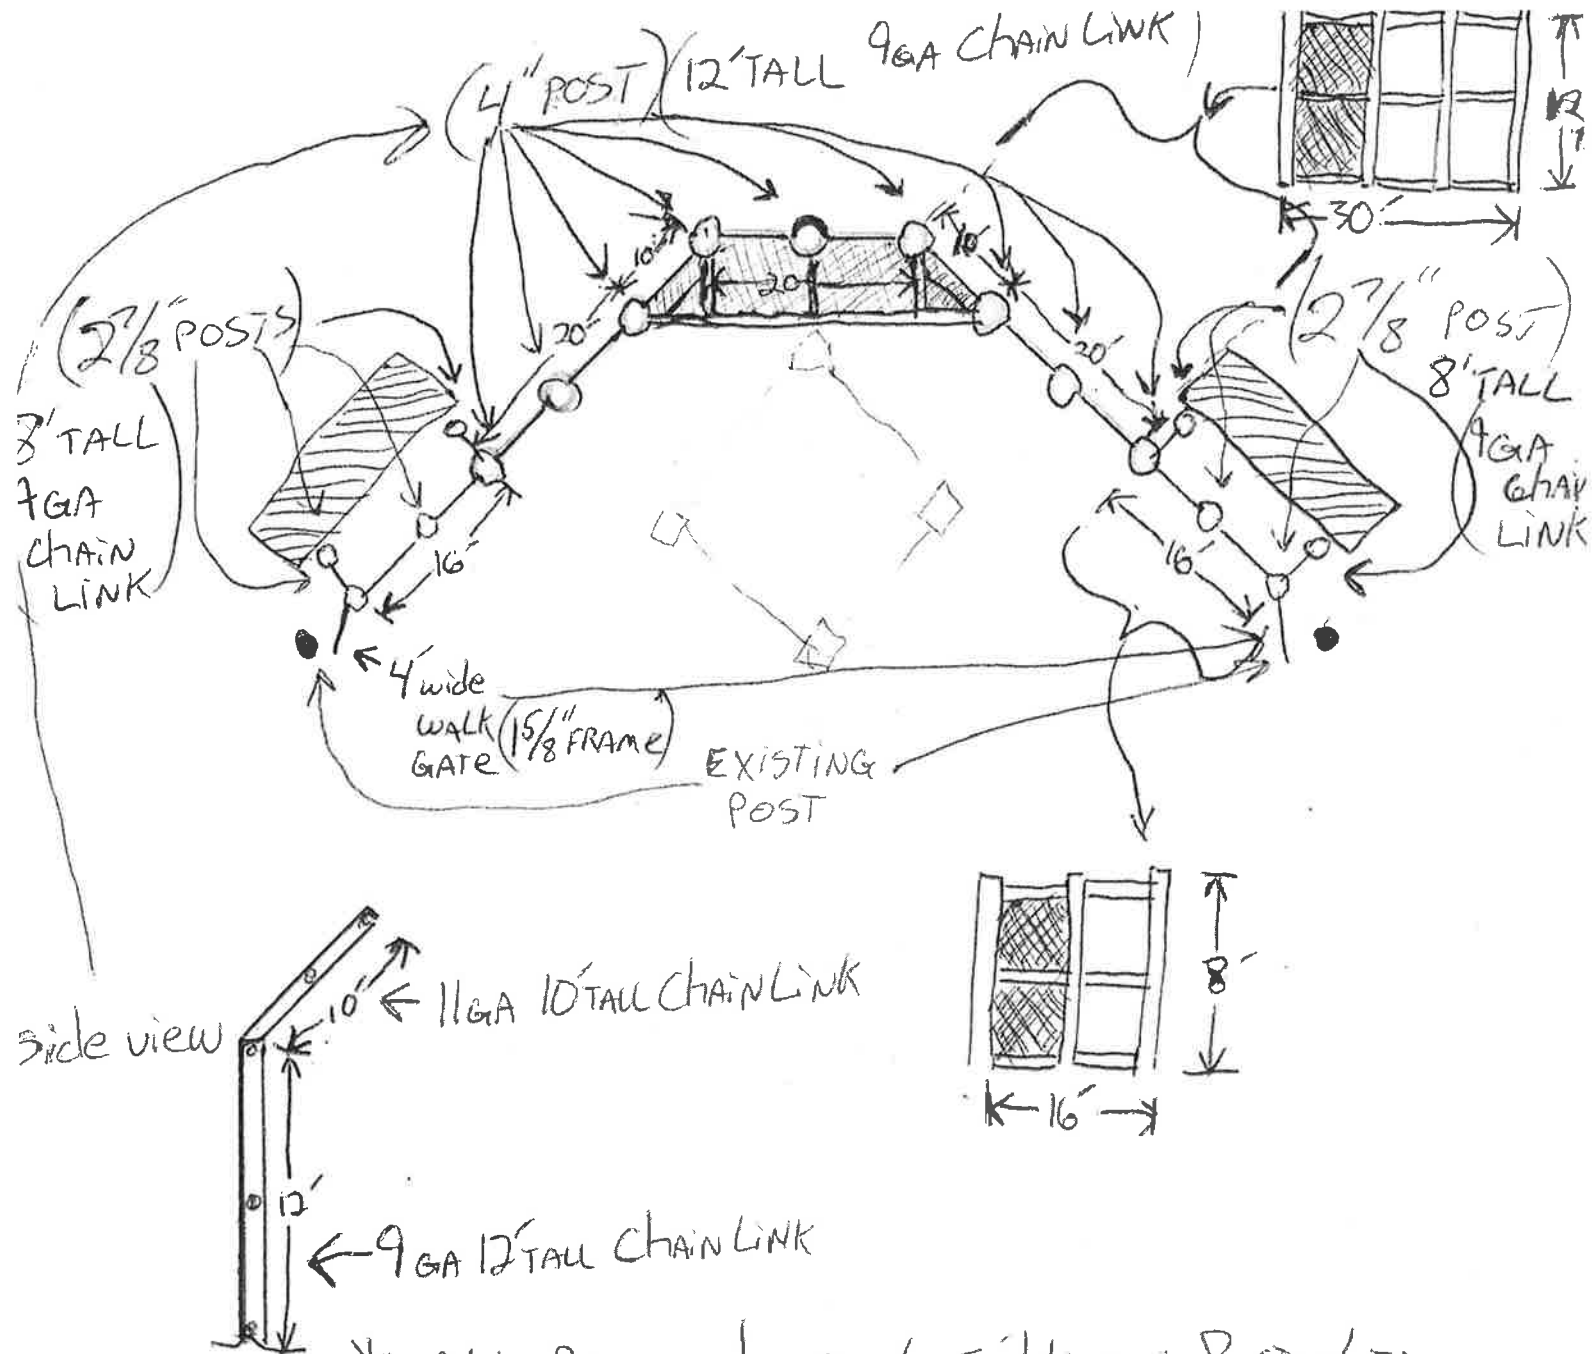 (4" POST) (12' TALL 9GA CHAIN LINK)
12'
30'
10'
10'
20'
20'
20'
(2 7/8" POSTS)
8' TALL
9GA
CHAIN
LINK
(2 7/8" POST)
8' TALL
9GA
CHAIN
LINK
16'
16'
4' wide
WALK
GATE (1 5/8" FRAME)
EXISTING
POST
8'
16'
side view
10'
11GA 10' TALL CHAIN LINK
12'
9GA 12' TALL CHAIN LINK